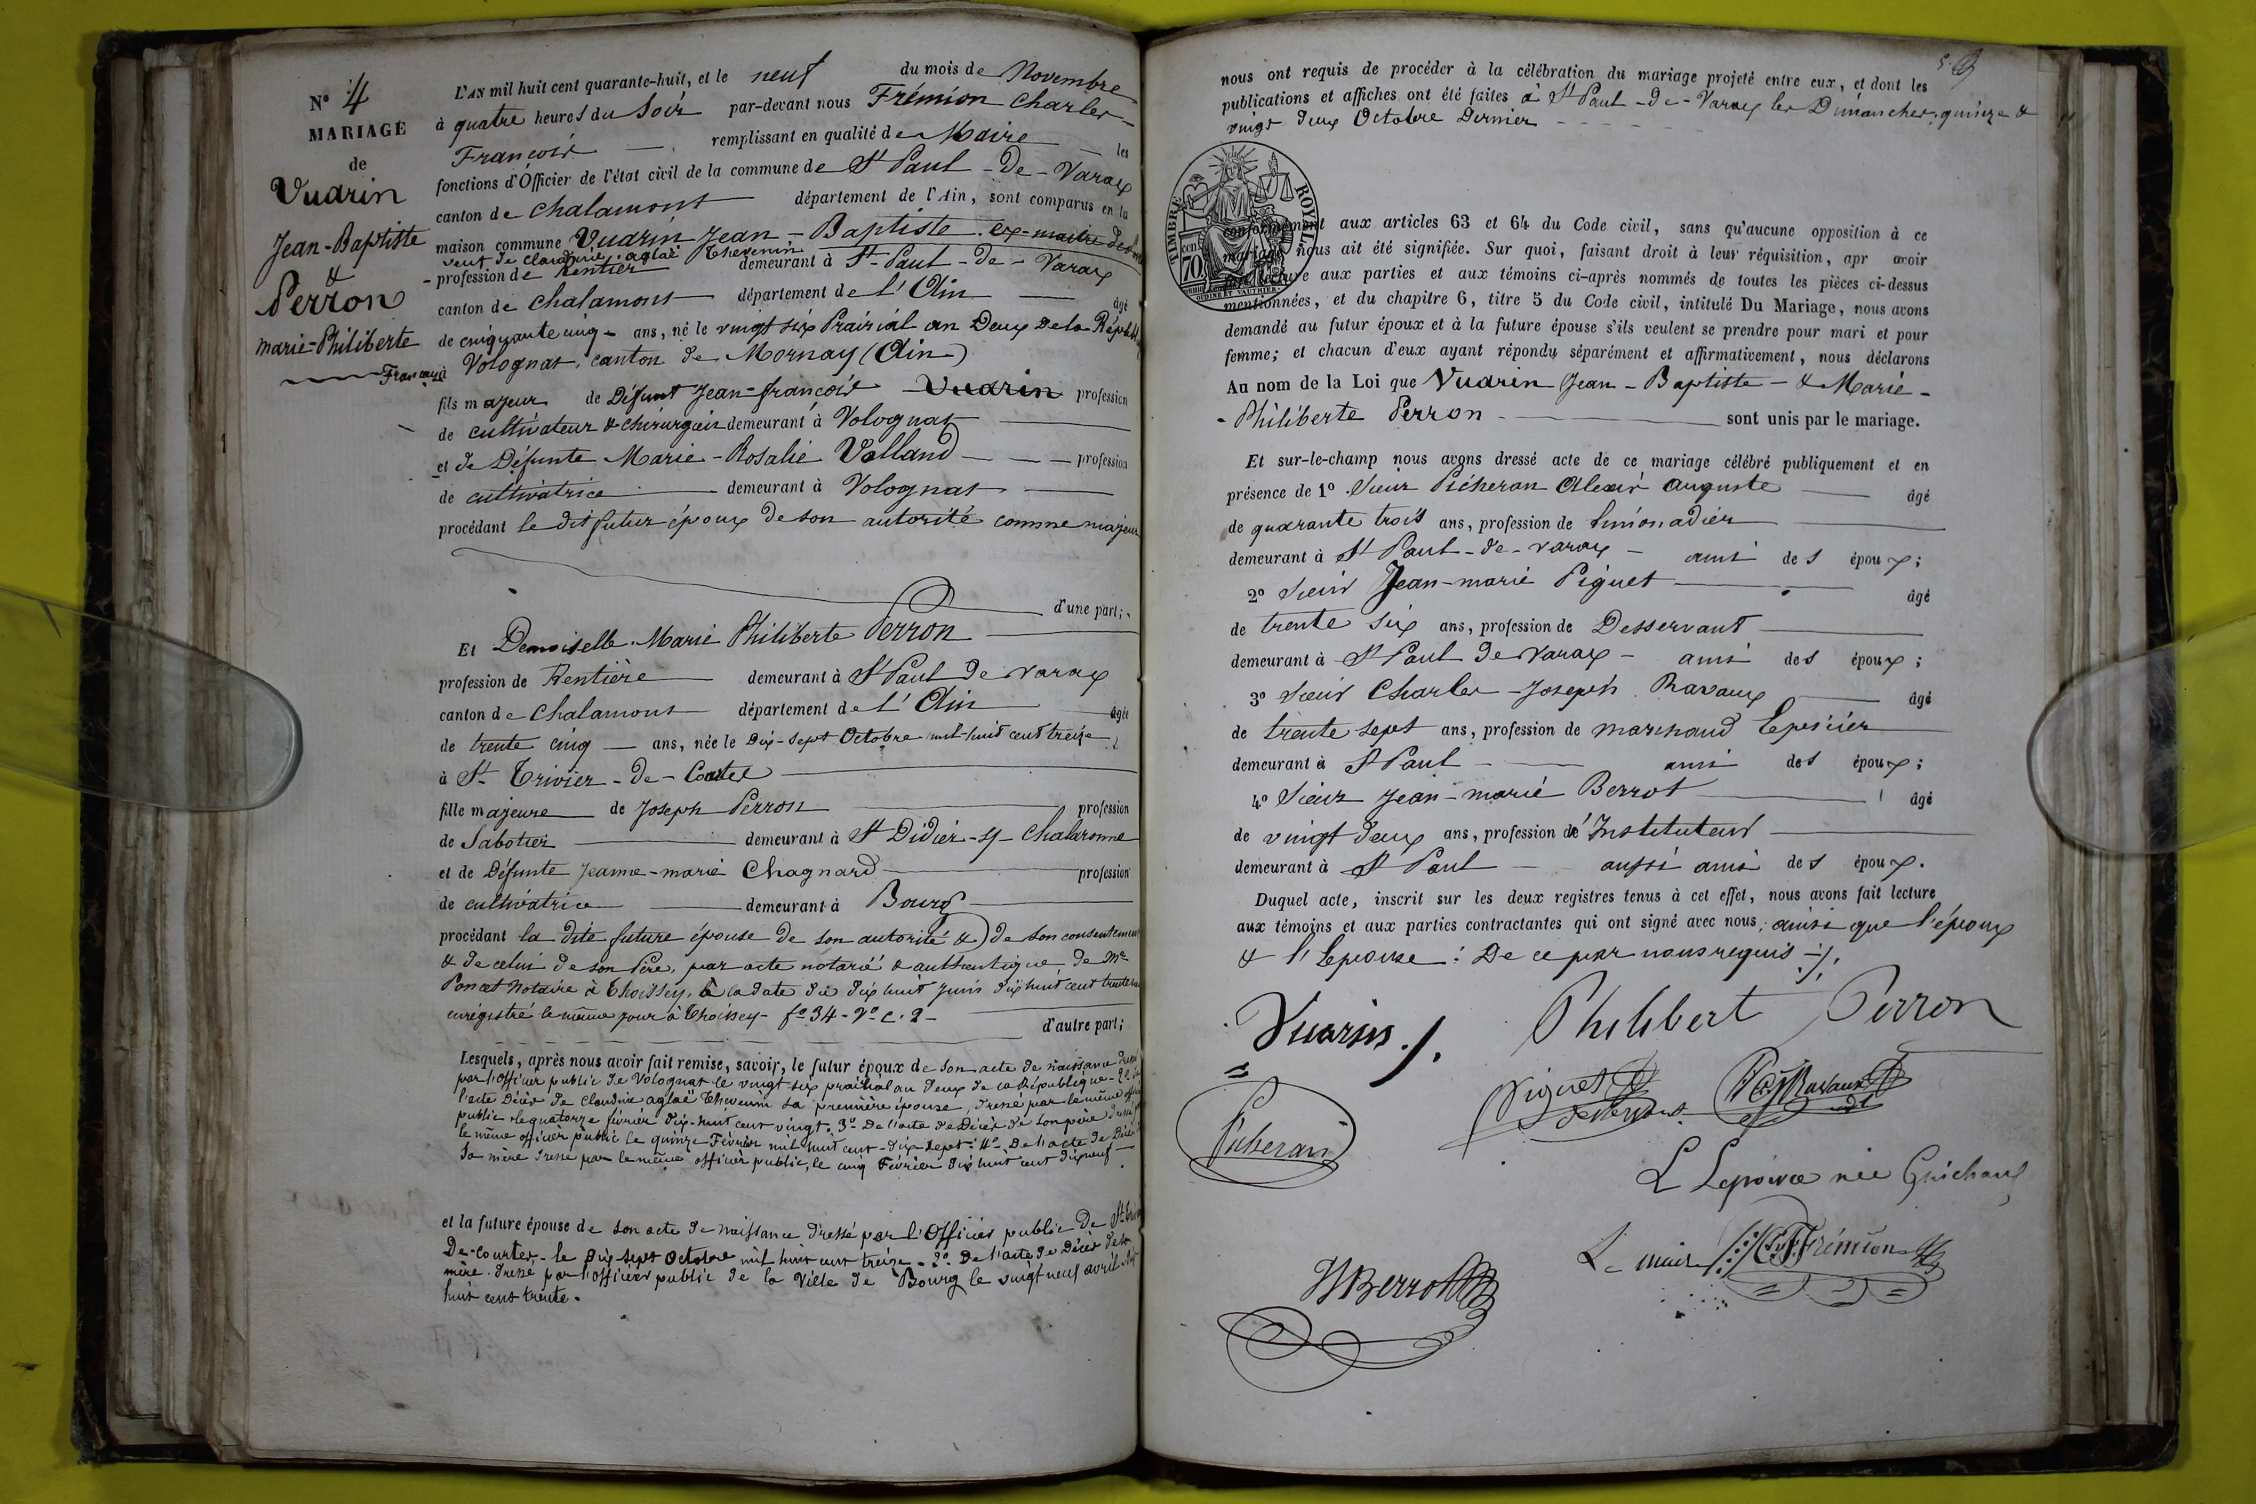 N° 4
MARIAGE
de
Vuarin
Jean-Baptiste
&
Perron
Marie-Philiberte
L'AN mil huit cent quarante-huit, et le neuf du mois de Novembre
à quatre heures du Soir par-devant nous Frémion Charles-
François remplissant en qualité de Maire les
fonctions d'Officier de l'état civil de la commune de St Paul-De-Varax
canton de Chalamont département de l'Ain, sont comparus en la
maison commune Vuarin Jean-Baptiste ex-maitre
veuf de Claudine aglaë Thevenin
profession de Rentier demeurant à St-Paul-de-Varax
canton de Chalamont département de l'Ain âgé
de cinquante cinq ans, né le vingt six Prairial an Deux De la
Français à Volognat, canton de Mornay (Ain)
fils majeur de Défunt Jean-françois Vuarin profession
de cultivateur & chirurgien demeurant à Volognat
et de Défunte Marie-Rosalie Volland profession
de cultivatrice demeurant à Volognat
procédant le dit futur époux de son autorité comme majeur
d'une part;
Et Demoiselle Marie Philiberte Perron
profession de Rentière demeurant à St Paul de Varax
canton de Chalamont département de l'Ain âgée
de trente cinq ans, née le Dix-Sept Octobre mil-huit cent treize
à St Trivier-De-Courtes
fille majeure de Joseph Perron profession
de Sabotier demeurant à St Didier-s/-Chalaronne
et de Défunte Jeanne-marie Chagnard profession
de cultivatrice demeurant à Bourg
procédant la dite future épouse de son autorité & de son consentement
& de celui de son Père, par acte notarié & authentique de Me
Poncet Notaire à Thoissey, à la date du dix huit Juin dix huit cent
enrégistré le même jour à Thoissey- f° 34- V° c. 2-
d'autre part;
Lesquels, après nous avoir fait remise, savoir, le futur époux de son acte de naissance
par l'officier public de Volognat le vingt six prairial an deux de la République- 2°
l'acte Décès de Claudine aglaë Thevenin sa première épouse, dressé par le même
public le quatorze février dix-huit cent vingt. 3° De l'acte de Décès de son père dressé
le même officier public le quinze Février mil huit cent-dix-sept. 4° De l'acte de Décès
Sa mère dressé par le même officier public, le cinq Février dix huit cent dixneuf
et la future épouse de son acte de naissance dressé par l'Officier public De St
De-Courtes- le Dix sept Octobre mil huit cent treize- 2° De l'acte de Décès de
mère dressé par l'officier public de la Ville de Bourg le vingt neuf avril
huit cent trente.
nous ont requis de procéder à la célébration du mariage projeté entre eux, et dont les
publications et affiches ont été faites à St Paul-De-Varax les Dimanches quinze &
vingt deux Octobre Dernier
TIMBRE ROYAL
70
conformément aux articles 63 et 64 du Code civil, sans qu'aucune opposition à ce
mariage nous ait été signifiée. Sur quoi, faisant droit à leur réquisition, apr avoir
lecture aux parties et aux témoins ci-après nommés de toutes les pièces ci-dessus
mentionnées, et du chapitre 6, titre 5 du Code civil, intitulé Du Mariage, nous avons
demandé au futur époux et à la future épouse s'ils veulent se prendre pour mari et pour
femme; et chacun d'eux ayant répondu séparément et affirmativement, nous déclarons
Au nom de la Loi que Vuarin Jean-Baptiste-& Marie-
-Philiberte Perron sont unis par le mariage.
Et sur-le-champ nous avons dressé acte de ce mariage célébré publiquement et en
présence de 1° Sieur Picheran Alexis Auguste âgé
de quarante trois ans, profession de limonadier
demeurant à St Paul-de-varax ami des époux;
2° Sieur Jean-marie Piguet âgé
de trente six ans, profession de Desservant
demeurant à St Paul de Varax ami des époux;
3° Sieur Charles-Joseph Ravaux âgé
de trente-sept ans, profession de marchand Epicier
demeurant à St Paul ami des époux;
4° Sieur Jean-marie Berrot âgé
de vingt deux ans, profession d'Instituteur
demeurant à St Paul aussi ami des époux.
Duquel acte, inscrit sur les deux registres tenus à cet effet, nous avons fait lecture
aux témoins et aux parties contractantes qui ont signé avec nous, ainsi que l'époux
& l'Epouse: De ce par nous requis
Vuarin Philibert Perron
Piguet Ravaux
desservant
Picheran
L Lepoivre née Guichard
Le maire Frémion
Berrot